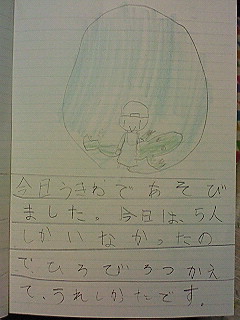 今日うきわであそび
ました。今日は、5人
しかいなかったの
で、ひろびろつかえ
て、うれしかたです。